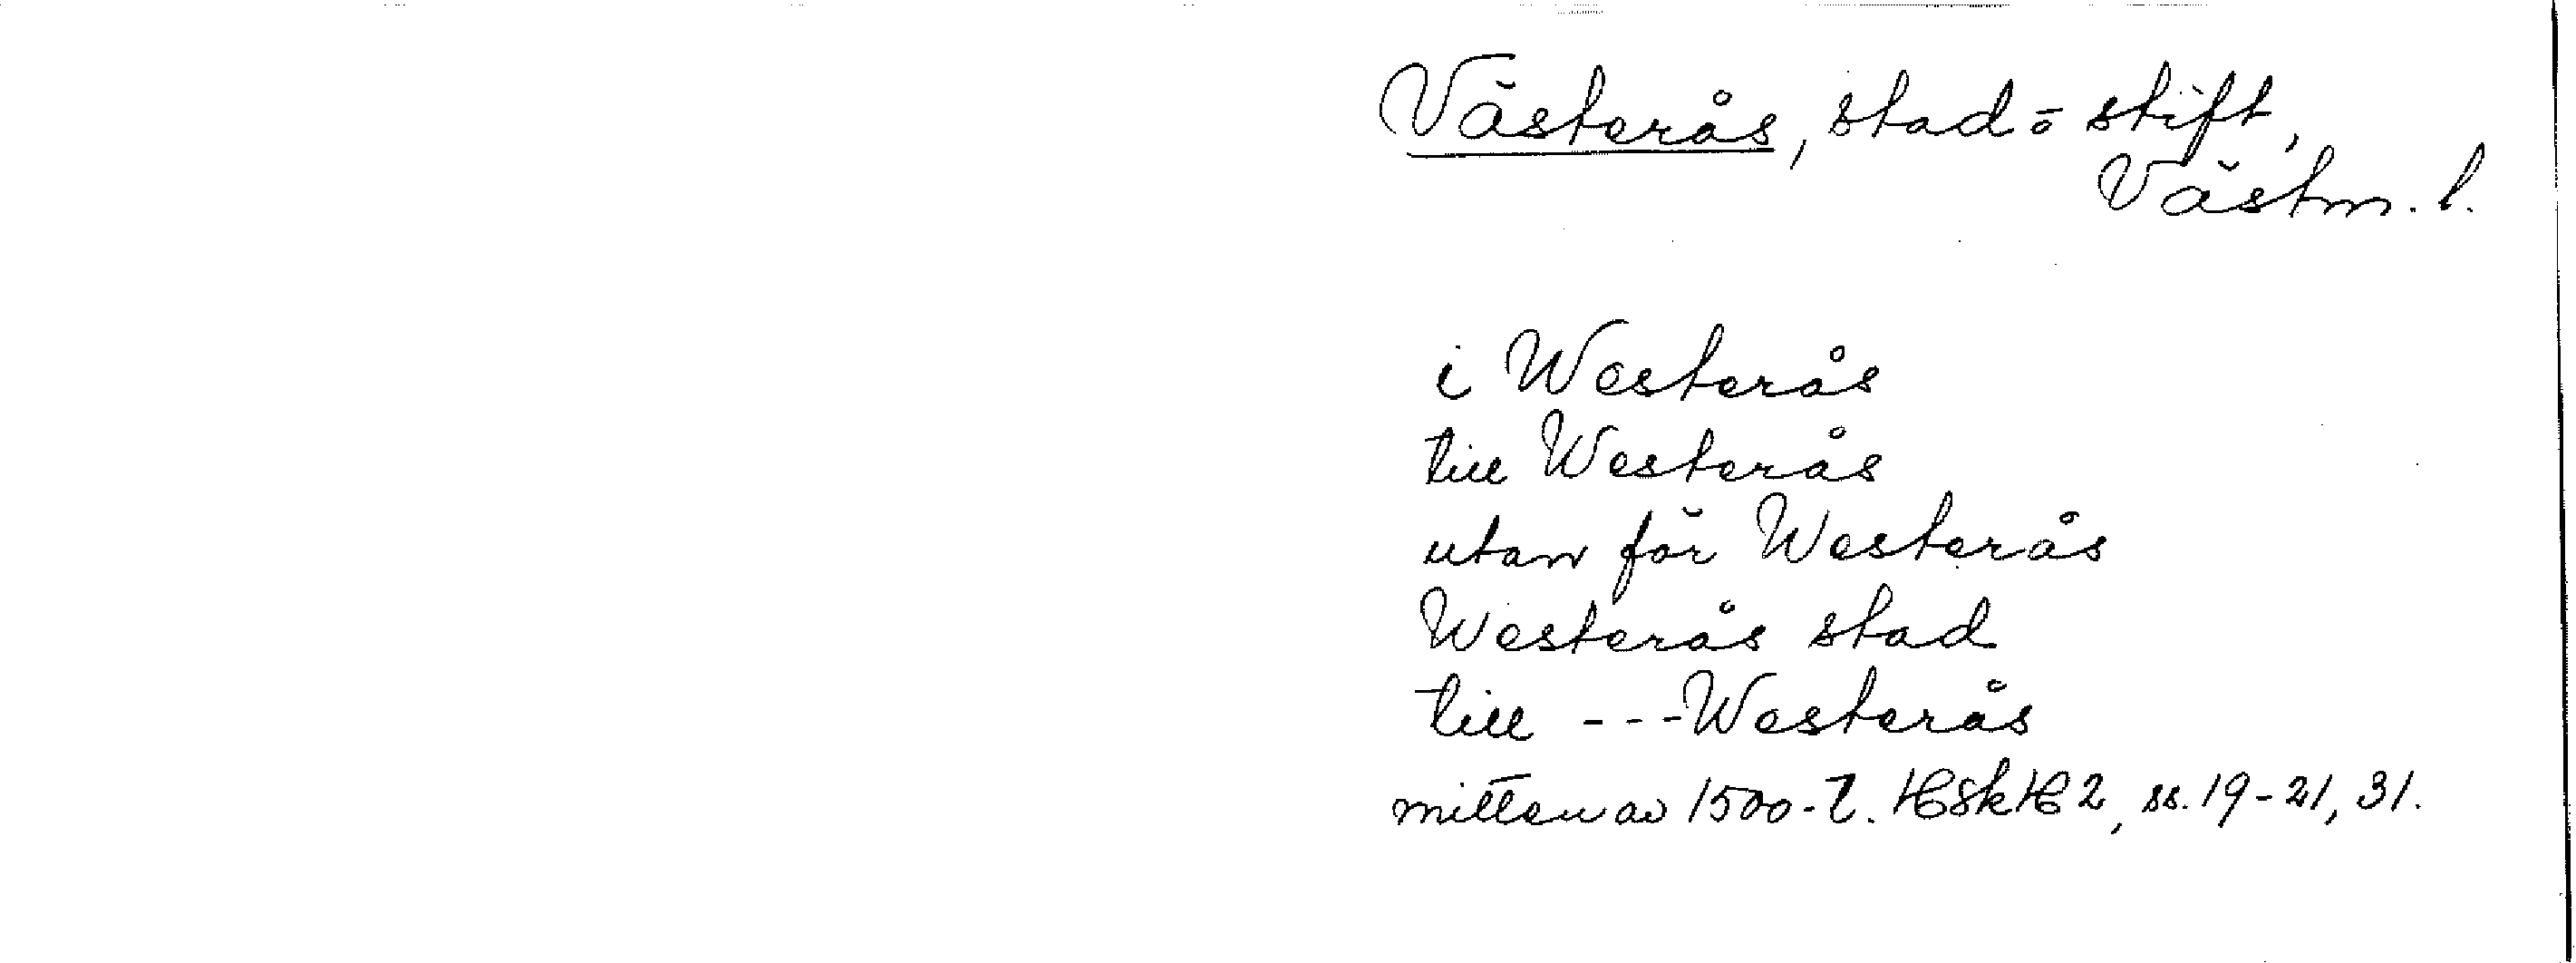 Västerås, stad o stift,
Västm. l.
i Westerås
till Westerås
utan för Westerås
Westerås stad
till ---Westerås
mitten av 1500-t. HSkH 2, ss. 19-21, 31.